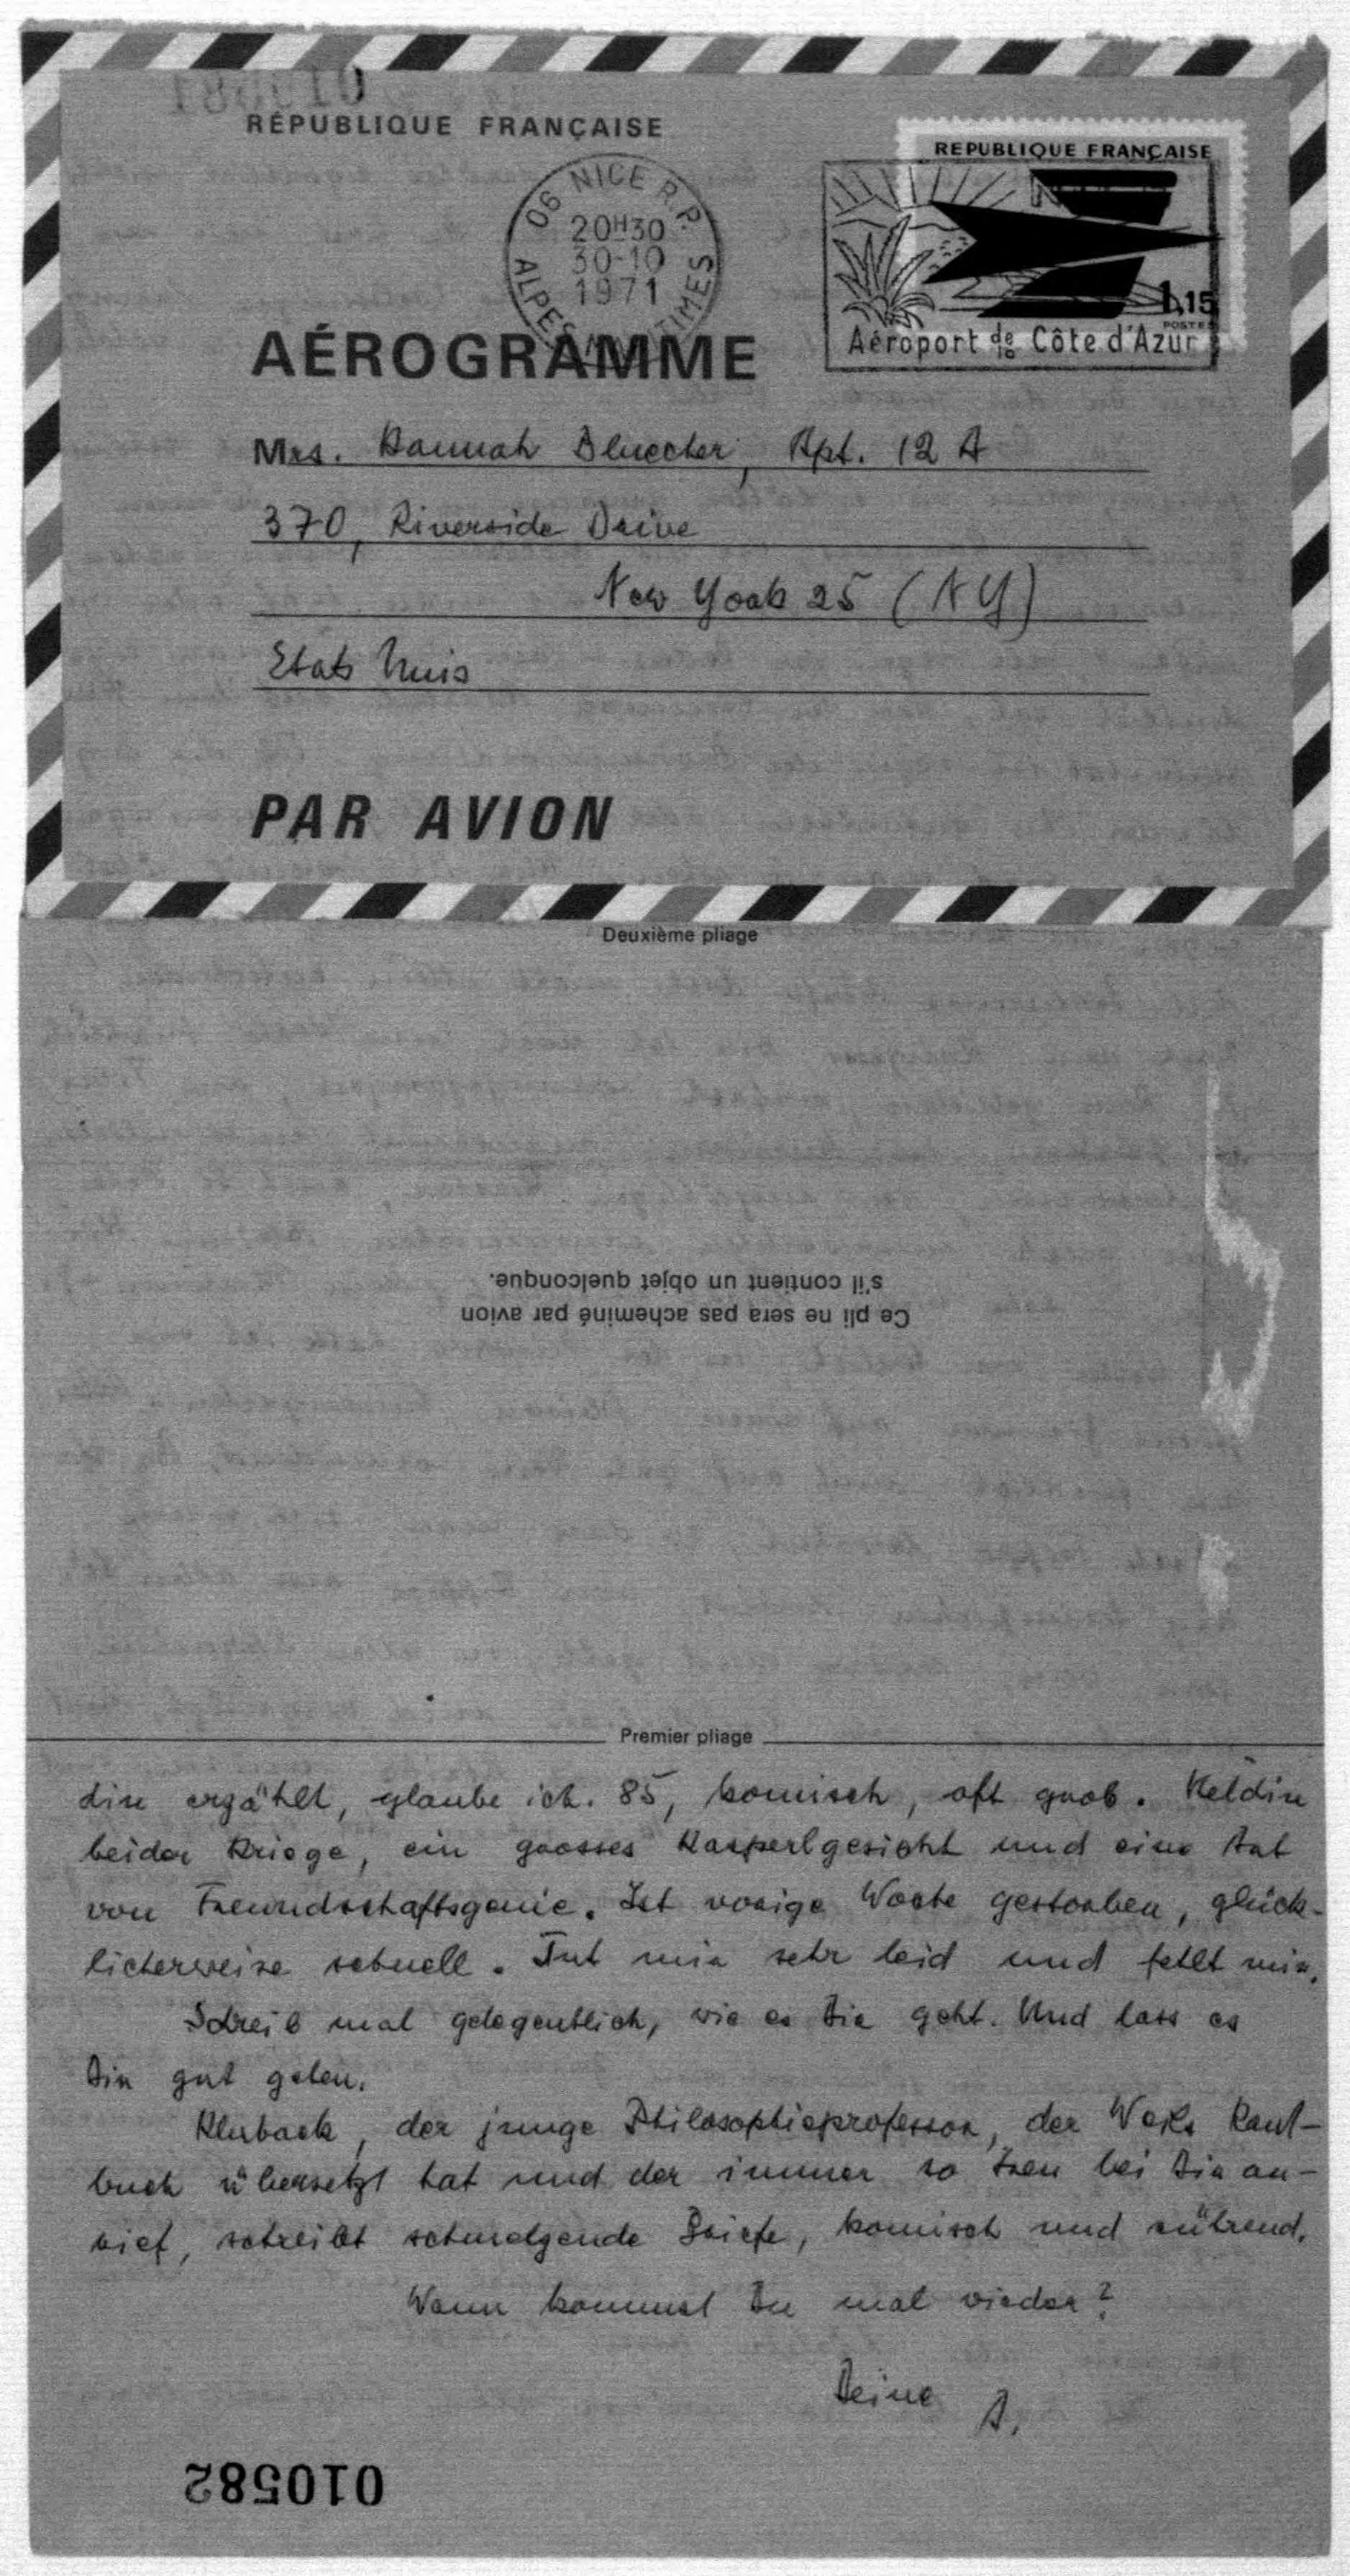 RÉPUBLIQUE FRANÇAISE
REPUBLIQUE FRANÇAISE
06 NICE R.P.
20H30
30-10
1971
ALPES MARITIMES
1,15
POSTES
Aéroport de la Côte d'Azur
AÉROGRAMME
Mrs. Hannah Bluecher, Apt. 12 A
370, Riverside Drive
New York 25 (NY)
Etats Unis
PAR AVION
Deuxième pliage
Ce pli ne sera pas acheminé par avion
s'il contient un objet quelconque.
Premier pliage
dir erzählt, glaube ich. 85, komisch, oft grob. Heldin
beider Kriege, ein grosses Kasperlgesicht und eine Art
von Freundschaftsgenie. Ist vorige Woche gestorben, glück-
licherweise schnell. Tut mir sehr leid und fehlt mir.
Schreib mal gelegentlich, wie es Dir geht. Und lass es
Dir gut gehen.
Kluback, der junge Philosophieprofessor, der Weils Kant-
buch übersetzt hat und der immer so treu bei Dir an-
rief, schreibt schmelzende Briefe, komisch und rührend.
Wann kommst Du mal wieder?
Deine A.
010582